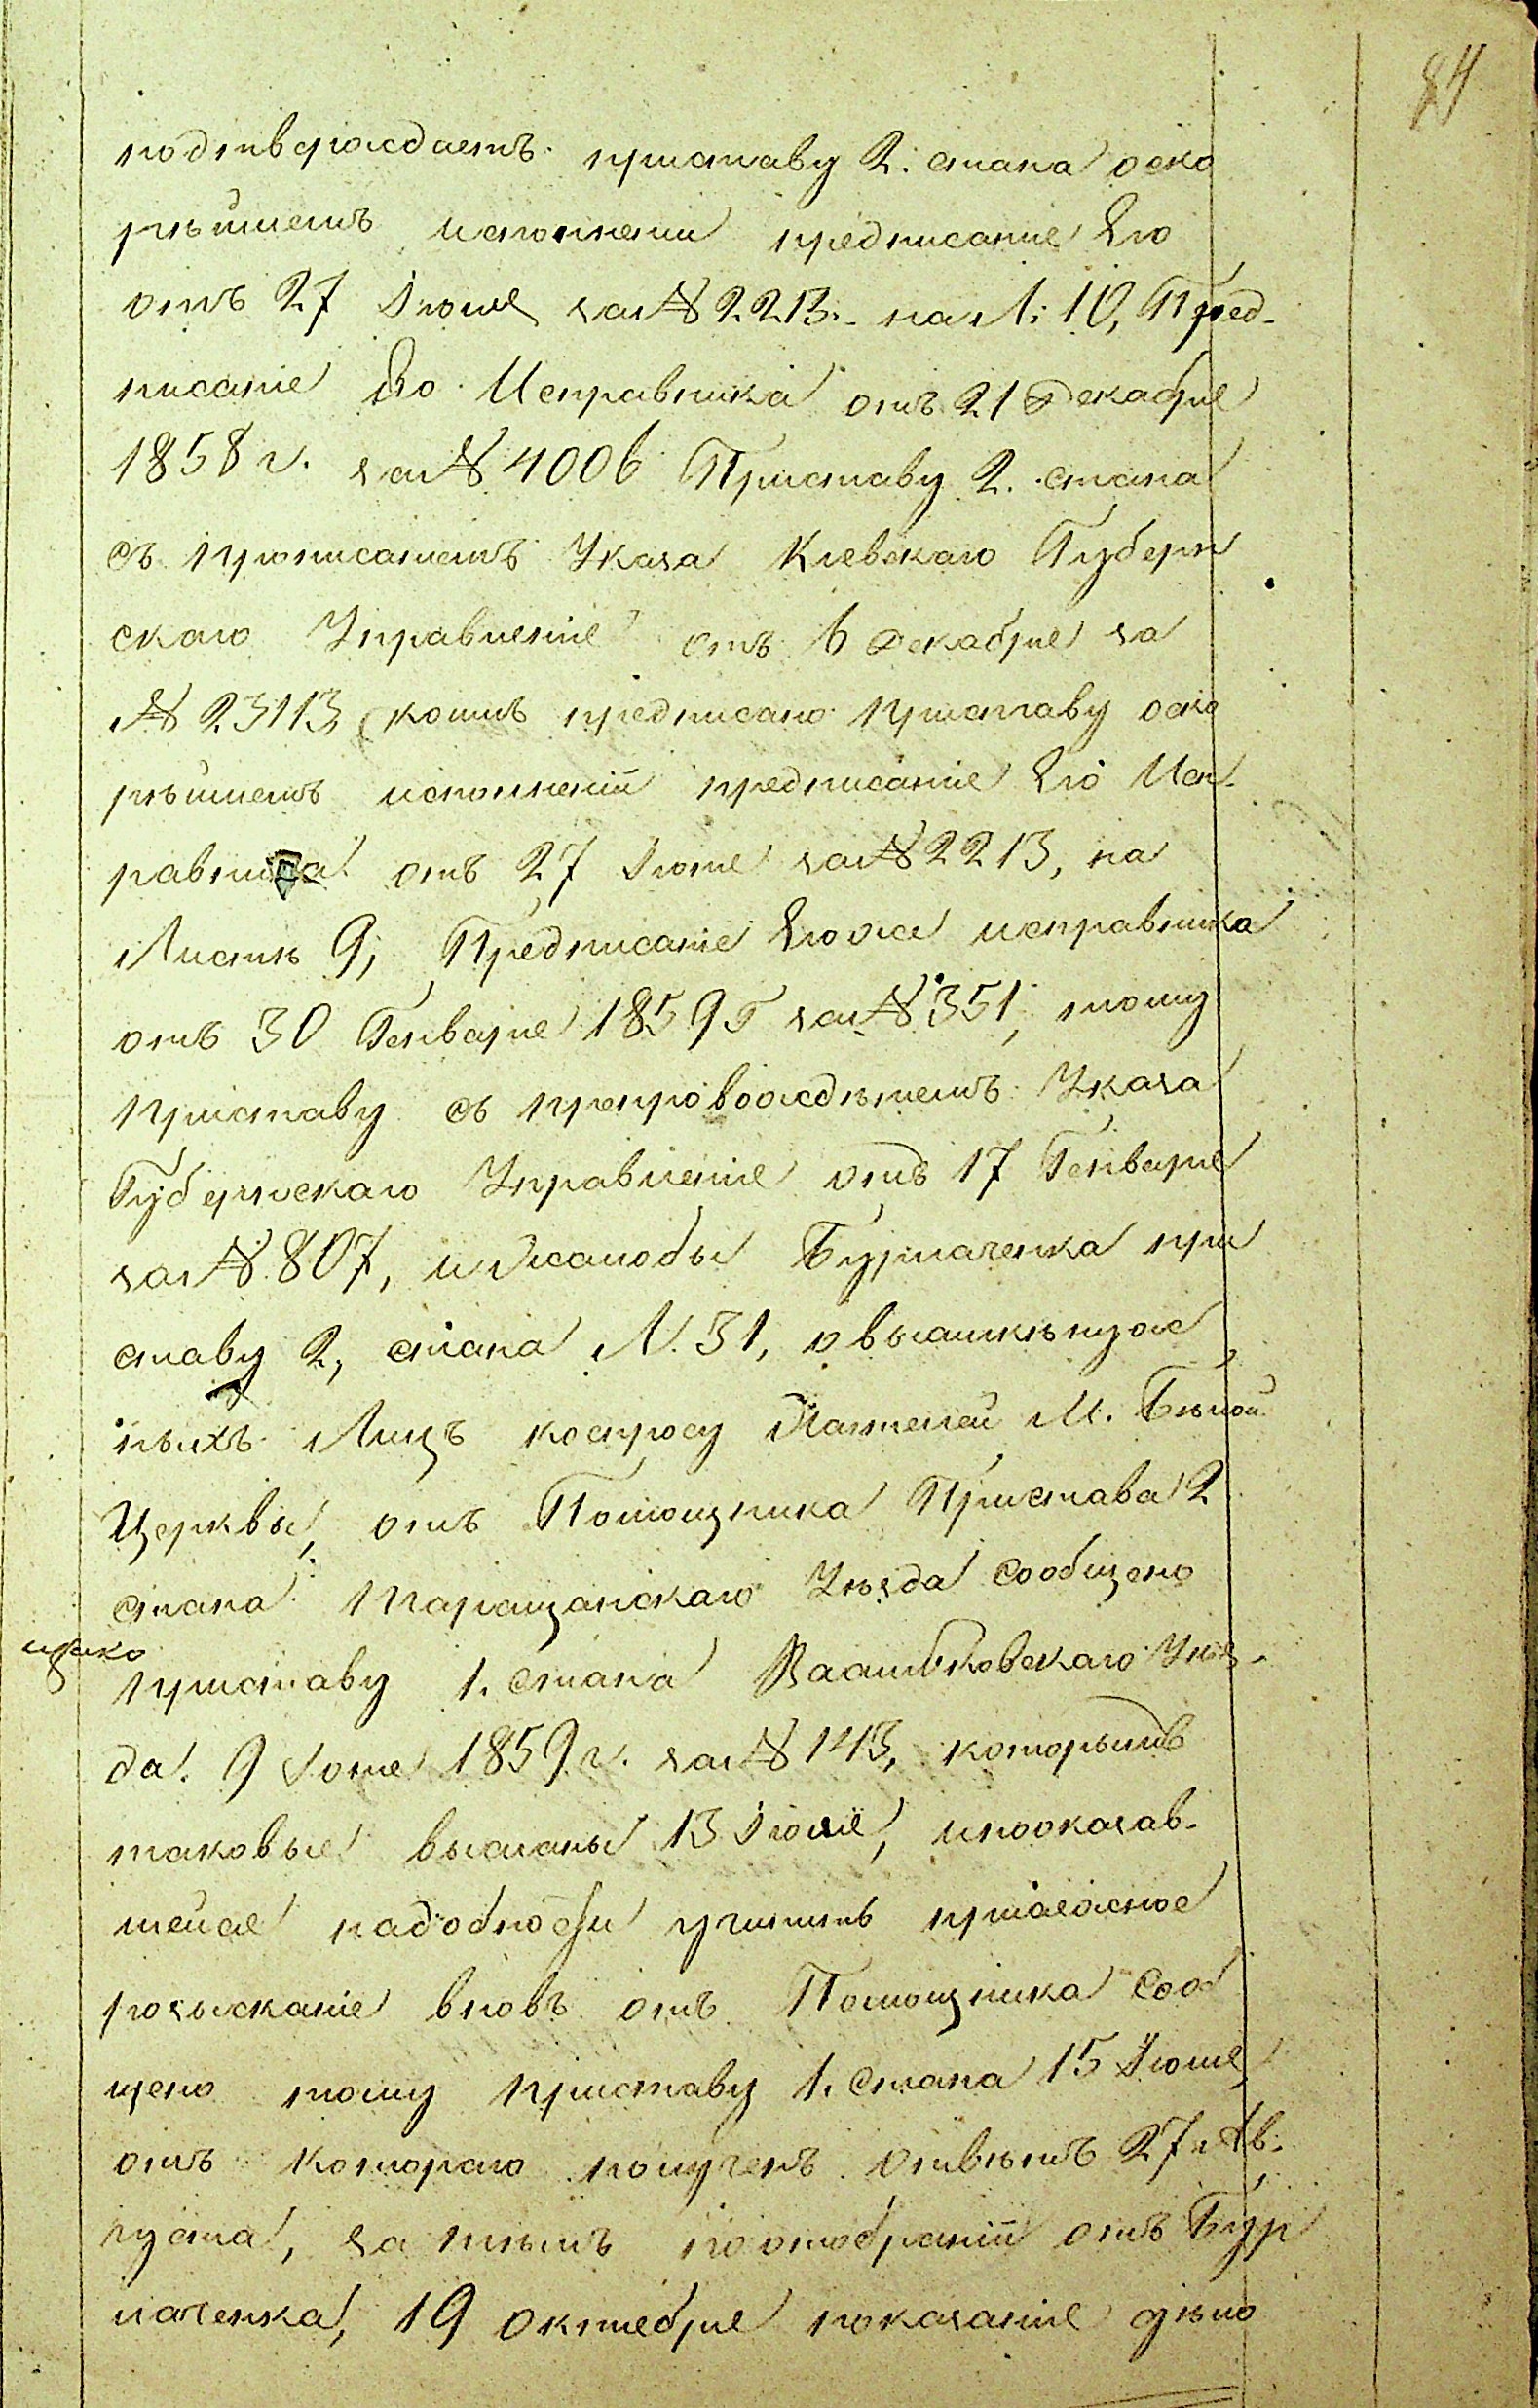 84
подтверждаетъ приставу 2. стана оско
рѣйшемъ исполнении предписание Его
отъ 27 Июня за № 2213. на л. 10, Пред-
писание Го Исправника отъ 21 Декабря
1858 г. за № 4006 Приставу 2. стана
съ прописаниемъ Указа Киевскаго Губерн
скаго Управление отъ 6 декабря за
№ 23113 коимъ предписано приставу оско
рѣйшемъ исполнении предписание Его Исп-
равника отъ 27 Июня за № 2213, на
Листѣ 9; Предписание Егоже исправника
отъ 30 Генваря 1859 г за № 351, тому
приставу съ препровождѣнемъ Указа
Губернскаго Управление отъ 17 Генваря
за № 807, и жалобы Бурлаченка при
ставу 2, стана Л. 31, овысилкѣ нуж
ныхъ Лицъ коспросу Жителей М. Бѣлой
Церквы, отъ Помощника Пристава 2
стана Таращанскаго Уѣзда Сообщено
приставу 1. стана Васильковскаго Уѣз-
да. 9 Июня 1859 г. за № 143, которымъ
таковые высланы 13 Июня, ипооказав-
шейся надобности учинить присяжное
розыскание вновь отъ Помощника Сооб
щено тому приставу 1. стана 15 Июня
отъ котораго получень ответъ 27 Ав-
густа, за тѣмъ поотобрании отъ Бур
лаченка, 19 октебря показание дѣло